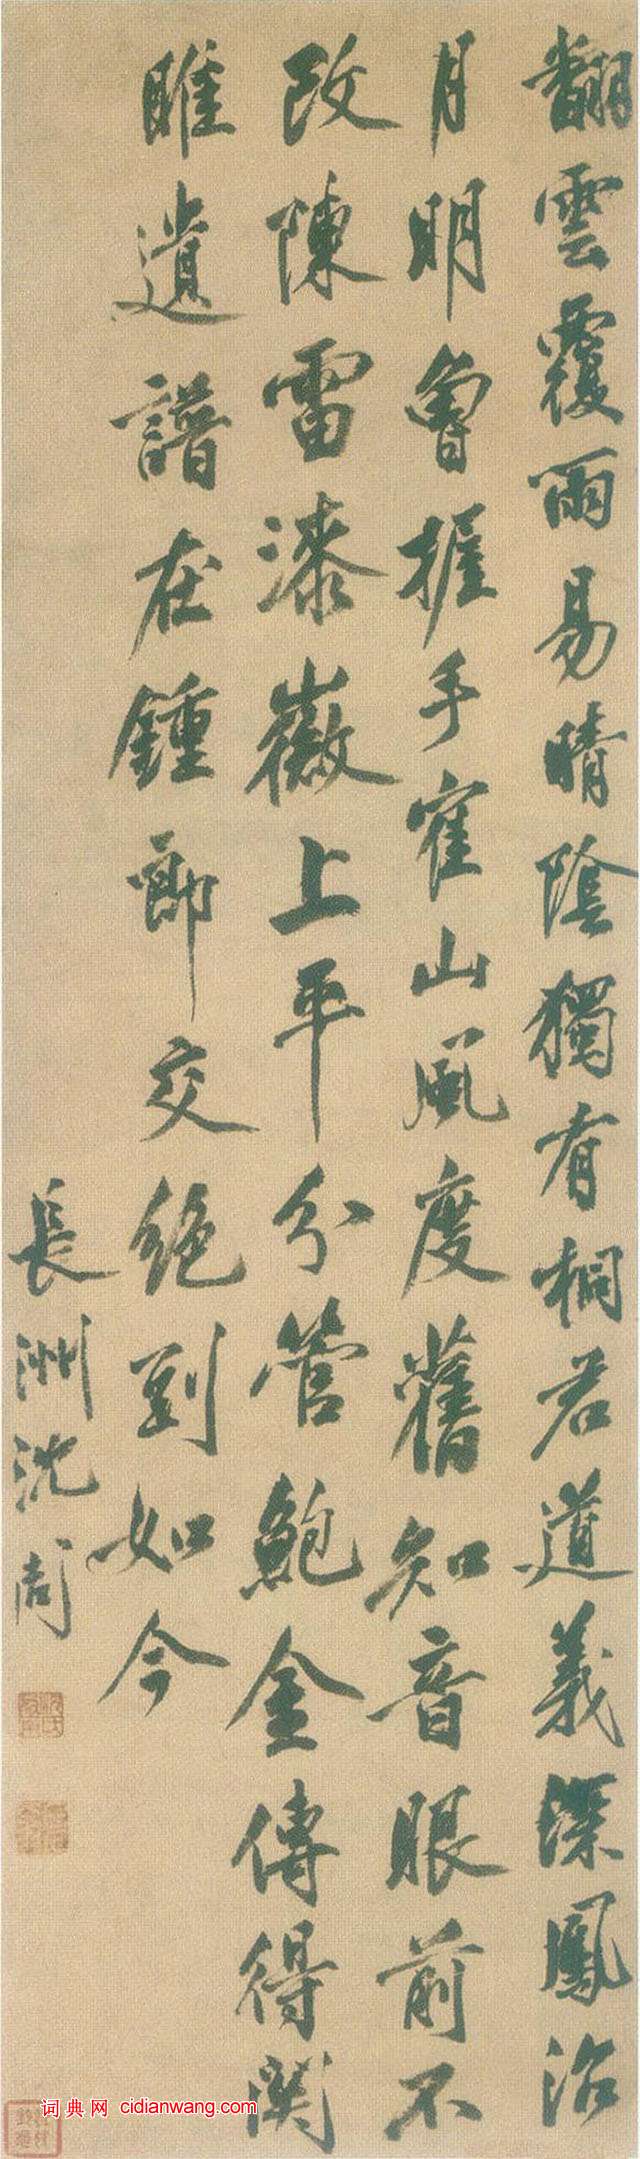 翻雲覆雨易晴陰獨有桐君道義深鳳沼
月明曾握手寉山風度舊知音眼前不
改陳雷漆徽上平分管鮑金傳得関
雎遺譜在鍾郎交絕到如今
長洲沈周
词典网 cidianwang.com